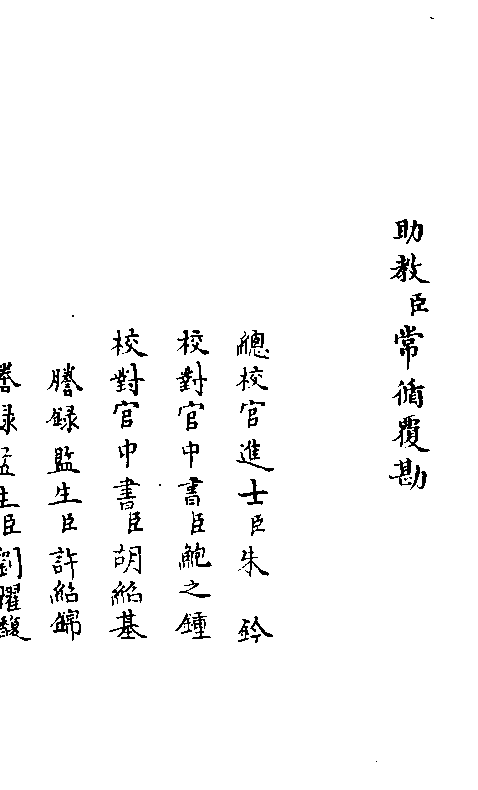 助教臣常循覆勘
總校官進士臣朱鈐
校對官中書臣鮑之鍾
校對官中書臣胡紹基
謄錄監生臣許紹錦
謄錄監生臣劉躍馥